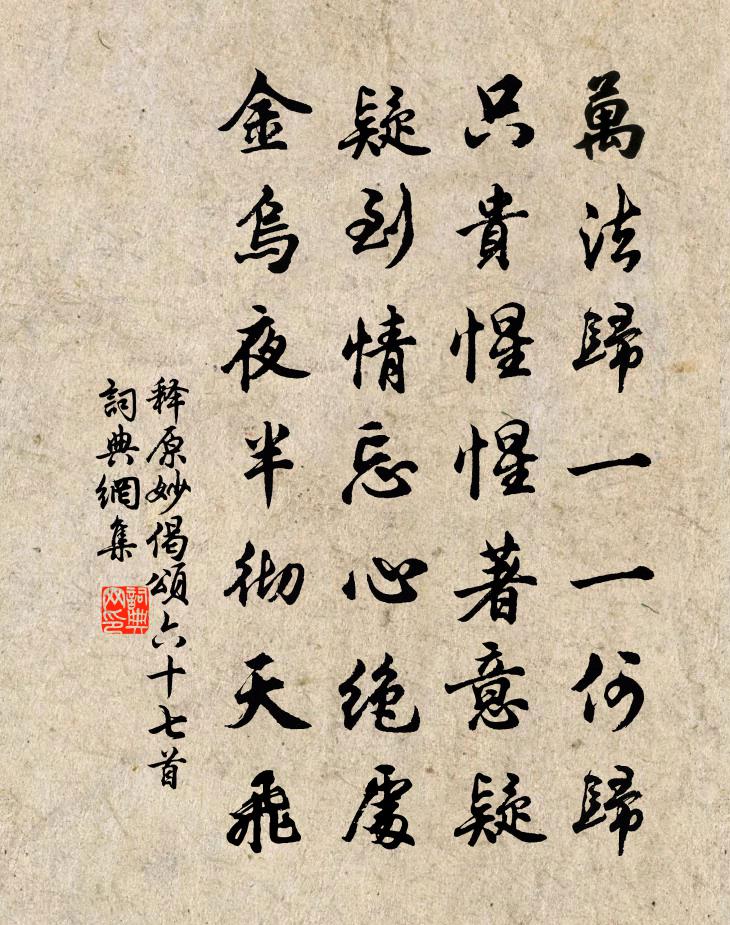 萬法歸一一何歸
只貴惺惺著意疑
疑到情忘心绝處
金烏夜半彻天飛
释原妙偈頌六十七首
詞典網集
詞典网印